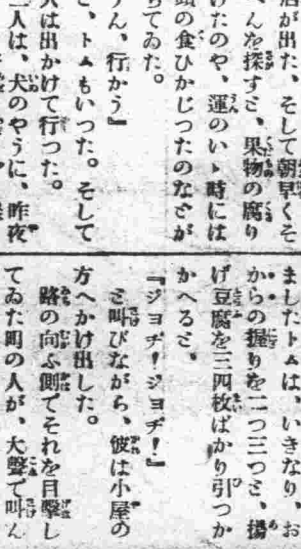 店が出た、そして朝早くそ
へんを探すと、果物の腐り
けたのや、運のいゝ時には
頭の食ひかじつたのなどが
ちてゐた。
うん、行かう』
と、トムもいつた。そして
人は出かけて行つた。
二人は、犬のやうに、昨夜
ましたトムは、いきなり、お
からの握りを二つ三つと、揚
げ豆腐を三四枚ばかり引つか
かへると、
『ジヨヂ！ジヨヂ！』
と叫びながら、彼は小屋の
方へかけ出した。
路の向ふ側でそれを目撃し
てゐた町の人が、大聲で叫ん